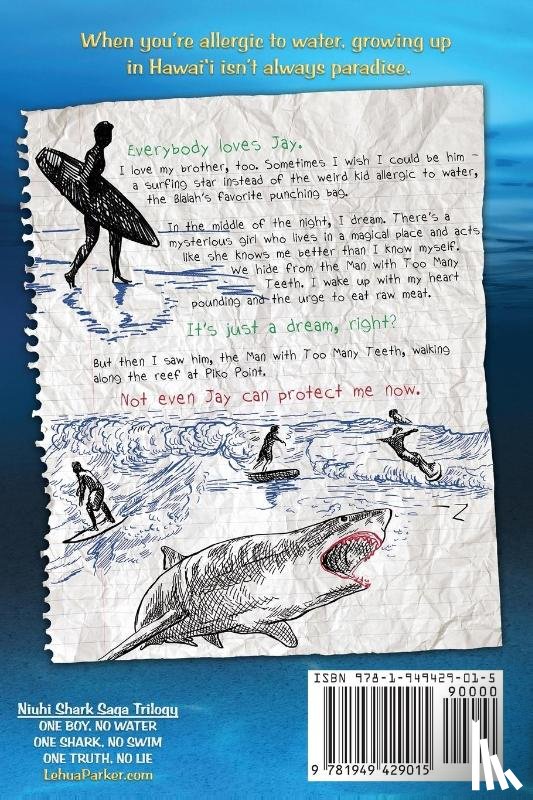 When you're allergic to water, growing up
in Hawai'i isn't always paradise.
Everybody loves Jay.
I love my brother, too. Sometimes I wish I could be him –
a surfing star instead of the weird kid allergic to water,
the Blalah's favorite punching bag.
In the middle of the night, I dream. There's a
mysterious girl who lives in a magical place and acts
like she knows me better than I know myself.
We hide from the Man with Too Many
Teeth. I wake up with my heart
pounding and the urge to eat raw meat.
It's just a dream, right?
But then I saw him, the Man with Too Many Teeth, walking
along the reef at Piko Point.
Not even Jay can protect me now.
–Z
Niuhi Shark Saga Trilogy
ONE BOY, NO WATER
ONE SHARK, NO SWIM
ONE TRUTH, NO LIE
LehuaParker.com
ISBN 978-1-949429-01-5
90000
9 781949 429015